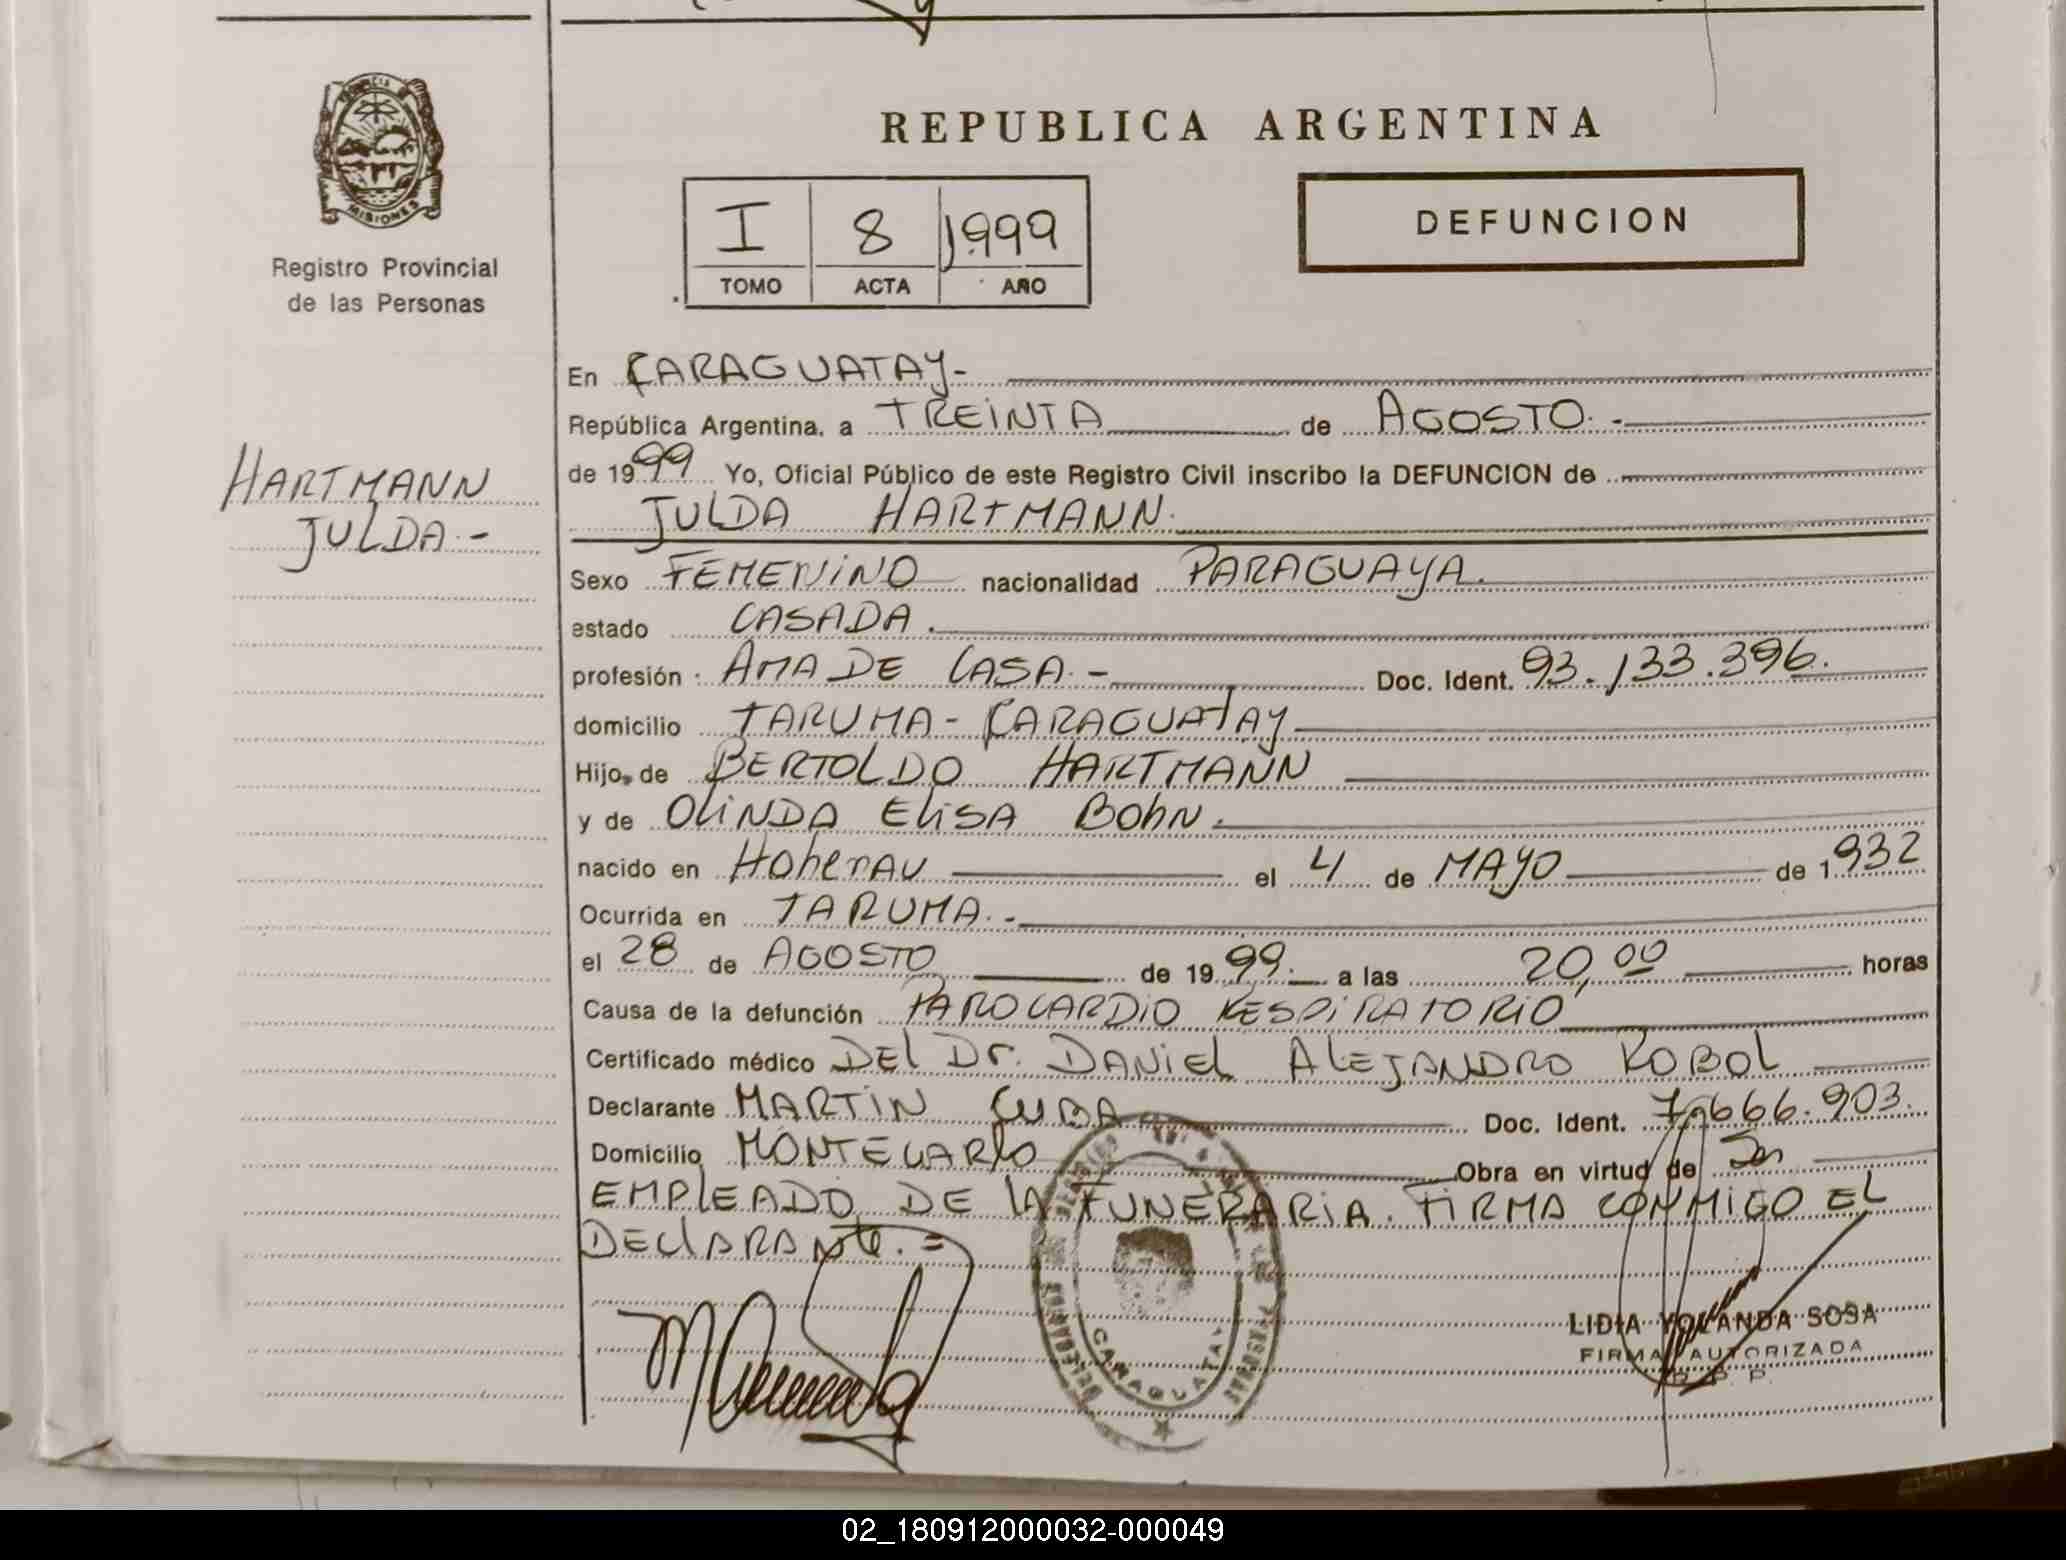 REPUBLICA ARGENTINA
PROVINCIA DE
MISIONES
Registro Provincial
de las Personas
I 8 1999
TOMO ACTA AÑO
DEFUNCION
HARTMANN
JULDA.-
En CARAGUATAY-
República Argentina, a TREINTA de AGOSTO.-
de 1999 Yo, Oficial Público de este Registro Civil inscribo la DEFUNCION de
JULDA HARTMANN.
Sexo FEMENINO nacionalidad PARAGUAYA.
estado CASADA.
profesión AMA DE CASA.- Doc. Ident. 93.133.396.
domicilio TARUMA-CARAGUATAY
Hijo, de BERTOLDO HARTMANN
y de OLINDA ELISA BOHN.
nacido en Hohenau el 4 de MAYO de 1932
Ocurrida en TARUMA.-
el 28 de AGOSTO de 1999. a las 20,00 horas
Causa de la defunción PAROCARDIO RESPIRATORIO
Certificado médico DEL Dr. DANIEL ALEJANDRO ROBOL
Declarante MARTIN CUBA Doc. Ident. 7.666.903.
Domicilio MONTECARLO Obra en virtud de Ser
EMPLEADO DE LA FUNERARIA. FIRMA CONMIGO EL
DECLARANTE.=
CARAGUATAY
LIDIA YOLANDA SOSA
FIRMA AUTORIZADA
R. P. P.
02_180912000032-000049